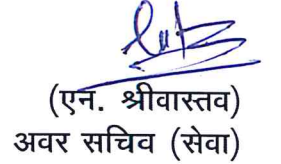 (एन. श्रीवास्तव)
अवर सचिव (सेवा)